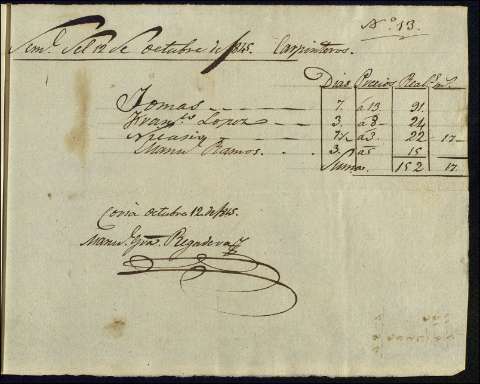 Nº 13.
Sem.ª del 12 de Octubre de 1845. Carpinteros.
Dias Precios Real.s m.s
Tomas 7. á 13 91.
Fran.co Lopez 3. á 8 24
Nicasio 7½ á 3 22 17
Manu.l Ramos. 3. á 5 15
Suma. 152 17.
Coria Octubre 12 de 1845.
Manu.l Regadera